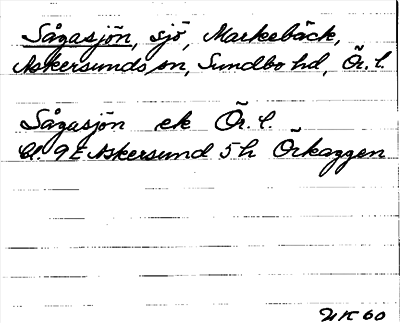 Sågasjön, sjö, Markebäck,
Askersunds sn, Sundbo hd, Ör. l.
Sågasjön ek Ör. l.
Bl. 9E Askersund 5h Örkaggen
NK 60